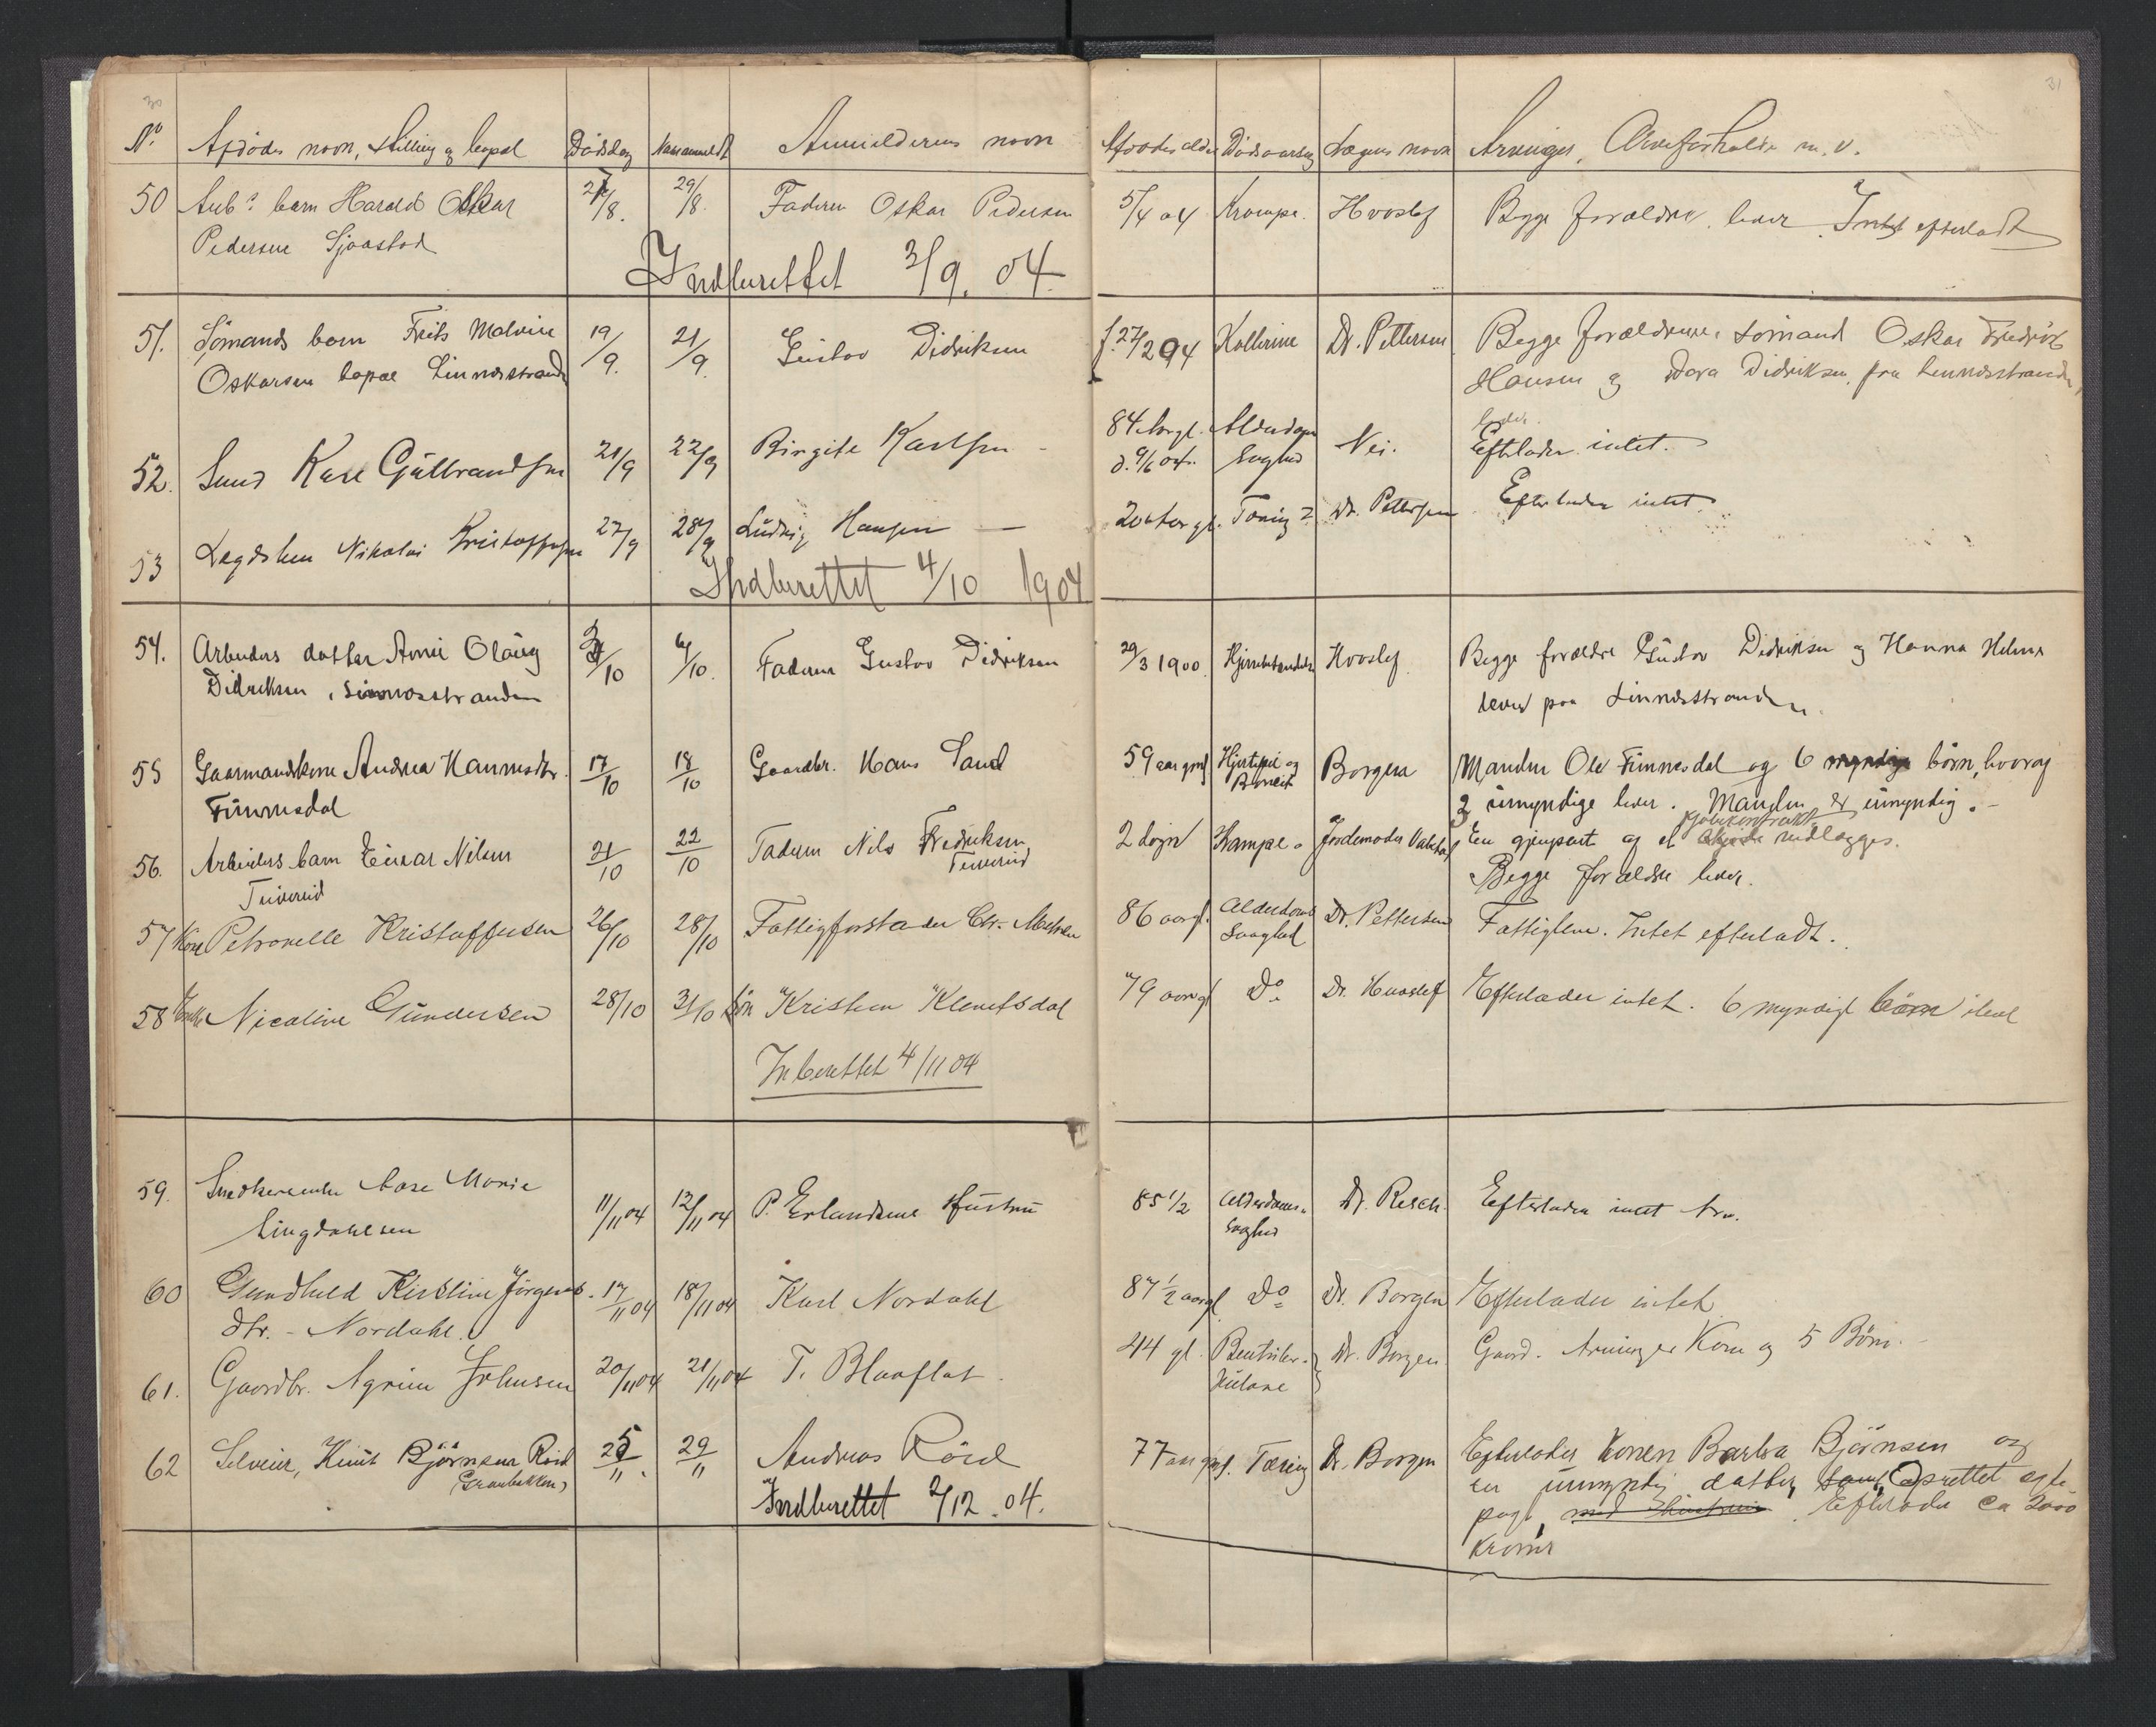 30
No. Afdødes navn, stilling og bopæl Dødsdag Naar anmeldt Anmelderens navn Afdødes alder Dødsaarsag Lægens navn Arvinger, Arveforholde m.v.
31
50 Arb.s barn Harald Oskar 27/8. 29/8. Faderen Oskar Pedersen 5/4 04 Krampe. Hvoslef Begge forældre lever. Intet efterladt
Pedersen Sjaastad
Indberettet 3/9. 04.
51. Sømands barn Frits Malvin 19/9. 21/9. Gustav Didriksen f. 27/2 94 Kollerine Dr. Pettersen Begge forældrene, sømand Oskar Fredrik
Oskarsen bopæl Linnesstranden Hansen og Dora Didriksen fra Linnesstranden,
lever.
52. Lund Karl Gulbrandsen 21/9 22/9 Birgite Karlsen - 84 Aar gl. Alderdoms Nei. Efterlader intet.
d. 9/6 04. Svaghed
53 Lægdslem Nikolai Kristoffersen 27/9 28/9 Ludvig Hansen — 20 Aar gl. Tæring? Dr. Pettersen Efterlader intet.
Indberettet 4/10 1904
54. Arbeiders datter Anni Olaug 3/10 6/10. Faderen Gustav Didriksen 29/3 1900 Hvoslef Begge forældre Gustav Didriksen og Hanna Helene
Didriksen, Linnesstranden lever paa Linnesstranden.
55 Gaarmandskone Andrea Hannesdtr. 17/10 18/10 Gaardbr. Hans Sand 59 aar gml Hjertefeil og Borgen Manden Ole Finnesdal og 6 myndige børn, hvorav
Finnesdal 3 umyndige lever. Manden er umyndig.-
56. Arbeiders barn Einar Nilsen 21/10 22/10 Faderen Nils Fredriksen 2 døgn Krampe. Jordemoder En gjenpart og et medlægges.
Begge forældre lever.
57 Kone Petronelle Kristoffersen 26/10 28/10 Fattigforstader Chr. 86 aar gl. Alderdoms Dr. Pettersen Fattiglem. Intet efterladt.
Svaghed
58 Enke Nicoline Gundersen 28/10 31/10 Søn Kristian Klemetsdal 79 aar gl Do. Dr. Hvoslef Efterlader intet. 6 myndige børn ilive
Inberettet 4/11 04
59. Snedkerenke Aase Marie 11/11 04 12/11 04 P. Erlandsens Hustru 85 1/2 Alderdoms- Dr. Resch. Efterlader intet Arv.
Lingdahlsen Svaghed
60 Gundhild Kirstine Jørgens- 17/11 04 18/11 04 Karl Nordahl 87 1/2 aar gl Do Dr. Borgen Efterlader intet
dtr. - Nordahl.
61. Gaardbr. Agrim Johnsen 20/11 04 21/11 04 T. Blaaflat. 44 gl. Dr. Borgen Gaard. Arvinger Kone og 5 Børn.-
62 Selveier, Knut Björnsen Röid 25/11. 29/11 Andreas Röid 77 aar gml. Tæring Dr. Borgen Efterlader konen Barbra Björnsen og
(Granbakken) en umyndig datter, samt Oprettet ægte-
pagt Efterlader ca 2000
kroner
Indberettet 2/12. 04.